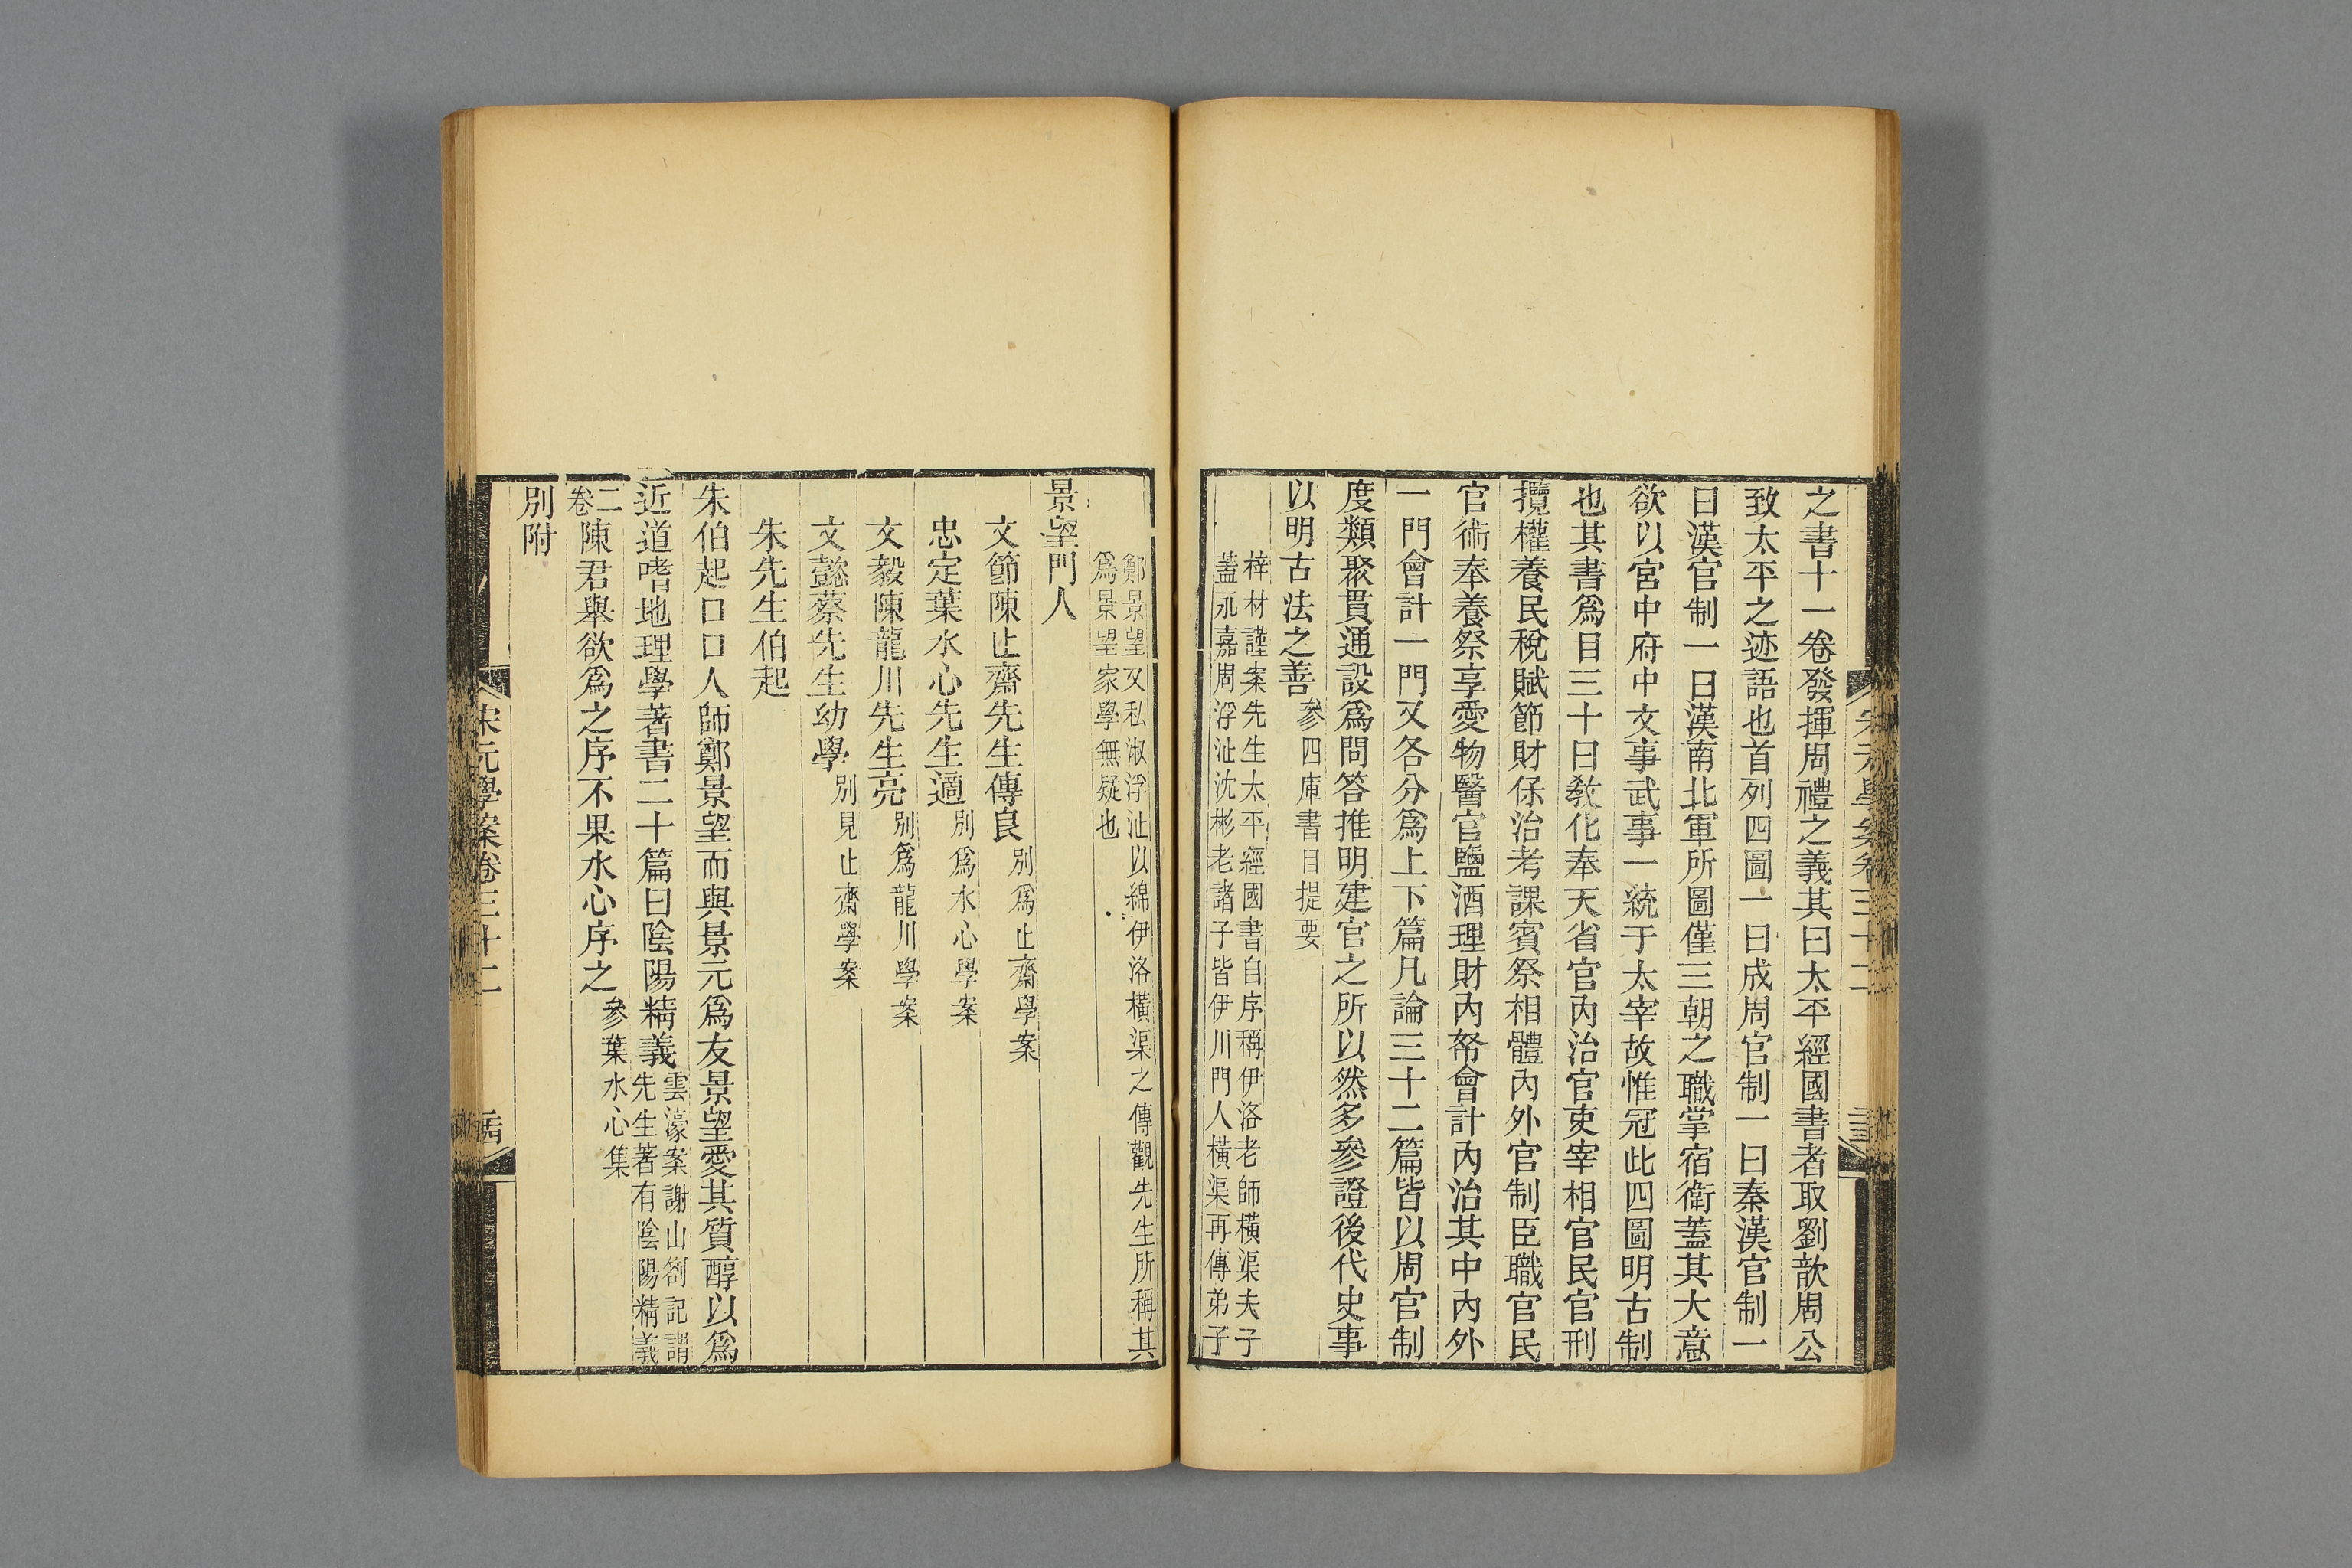 宋元學案卷三十二
之書十一卷發揮周禮之義其曰太平經國書者取劉歆周公
致太平之迹語也首列四圖一曰成周官制一曰秦漢官制一
曰漢官制一曰漢南北軍所圖僅三朝之職掌宿衛蓋其大意
欲以宮中府中文事武事一統于太宰故惟冠此四圖明古制
也其書爲目三十曰敎化奉天省官內治官吏宰相官民官刑
攬權養民稅賦節財保治考課賓祭相體內外官制臣職官民
官術奉養祭享愛物醫官鹽酒理財內帑會計內治其中內外
一門會計一門又各分爲上下篇凡論三十二篇皆以周官制
度類聚貫通設爲問答推明建官之所以然多參證後代史事
以明古法之善參四庫書目提要
梓材謹案先生太平經國書自序稱伊洛老師橫渠夫子
蓋永嘉周浮沚沈彬老諸子皆伊川門人橫渠再傳弟子
鄭景望又私淑浮沚以綿伊洛橫渠之傳觀先生所稱其
爲景望家學無疑也
景望門人
文節陳止齋先生傅良別爲止齋學案
忠定葉水心先生適別爲水心學案
文毅陳龍川先生亮別爲龍川學案
文懿蔡先生幼學別見止齋學案
朱先生伯起
朱伯起口口人師鄭景望而與景元爲友景望愛其質醇以爲
近道嗜地理學著書二十篇曰陰陽精義雲濠案謝山劄記謂
先生著有陰陽精義
二卷陳君舉欲爲之序不果水心序之參葉水心集
別附
宋元學案卷三十二